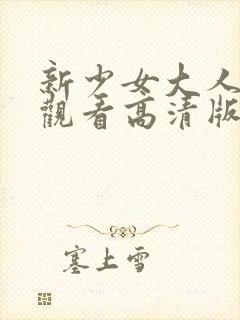 新少女大人
觀看高清版
塞上雪